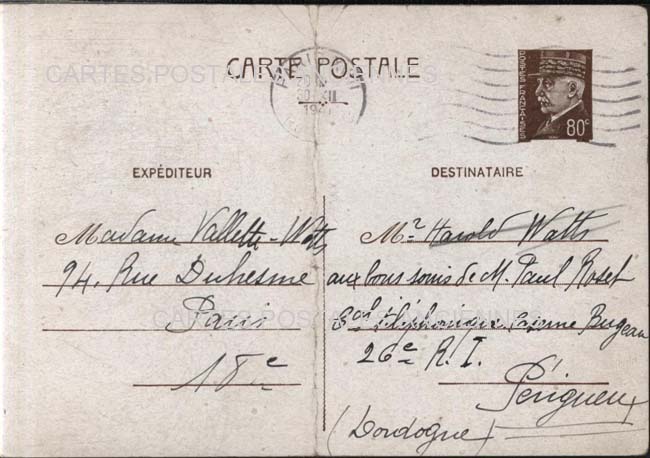 CARTE POSTALE
CARTES POSTALES ANCIENNES
POSTES FRANÇAISES
80c
EXPÉDITEUR
Madame Vallette-Watts
94, Rue Duhesme
Paris
18e
DESTINATAIRE
Mr Harold Watts
aux bons soins de M. Paul Roset
téléphonique Caserne Bugeau
26e R. I.
Périgueux
(Dordogne)
CARTES POSTALES ANCIENNES